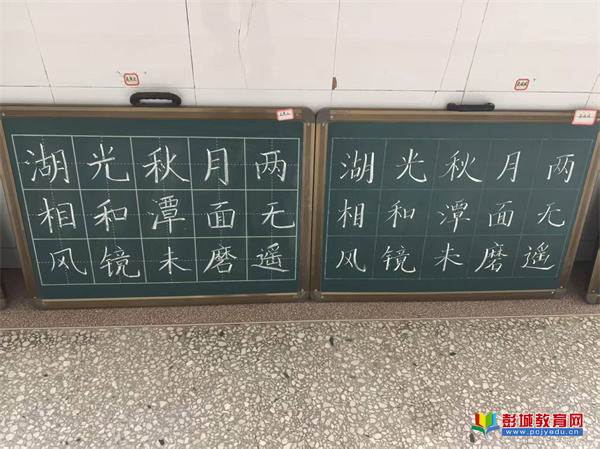 湖光秋月两
相和潭面无
风镜未磨遥
湖光秋月两
相和潭面无
风镜未磨遥
彭城教育网
www.pcjyedu.cn